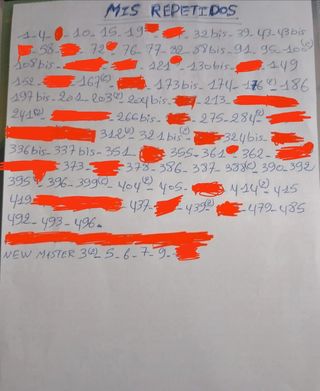 MIS REPETIDOS.
1-4- -10-15-19- - 32bis-39-43-43bis
-58- -72- 76-77-82-88bis-91-95-
108bis- - -121- -130bis- -149
152- -167(2)- -173bis-174-176(2)-186
197bis-201-203(2)-204bis- -213-
241(2)- -266bis- -275-284(2)-
312(2)-321bis(2)- -324bis-
336bis-337bis-351- -355-361-362-
-373- -378-386-387-388(2)-390-392
395- -396-399(2)- -404(2)-405- -414(2)-415
419 -437- -439(2)- -479-485
492-493-496-
NEW MASTER 3(2)-5-6-7-9-